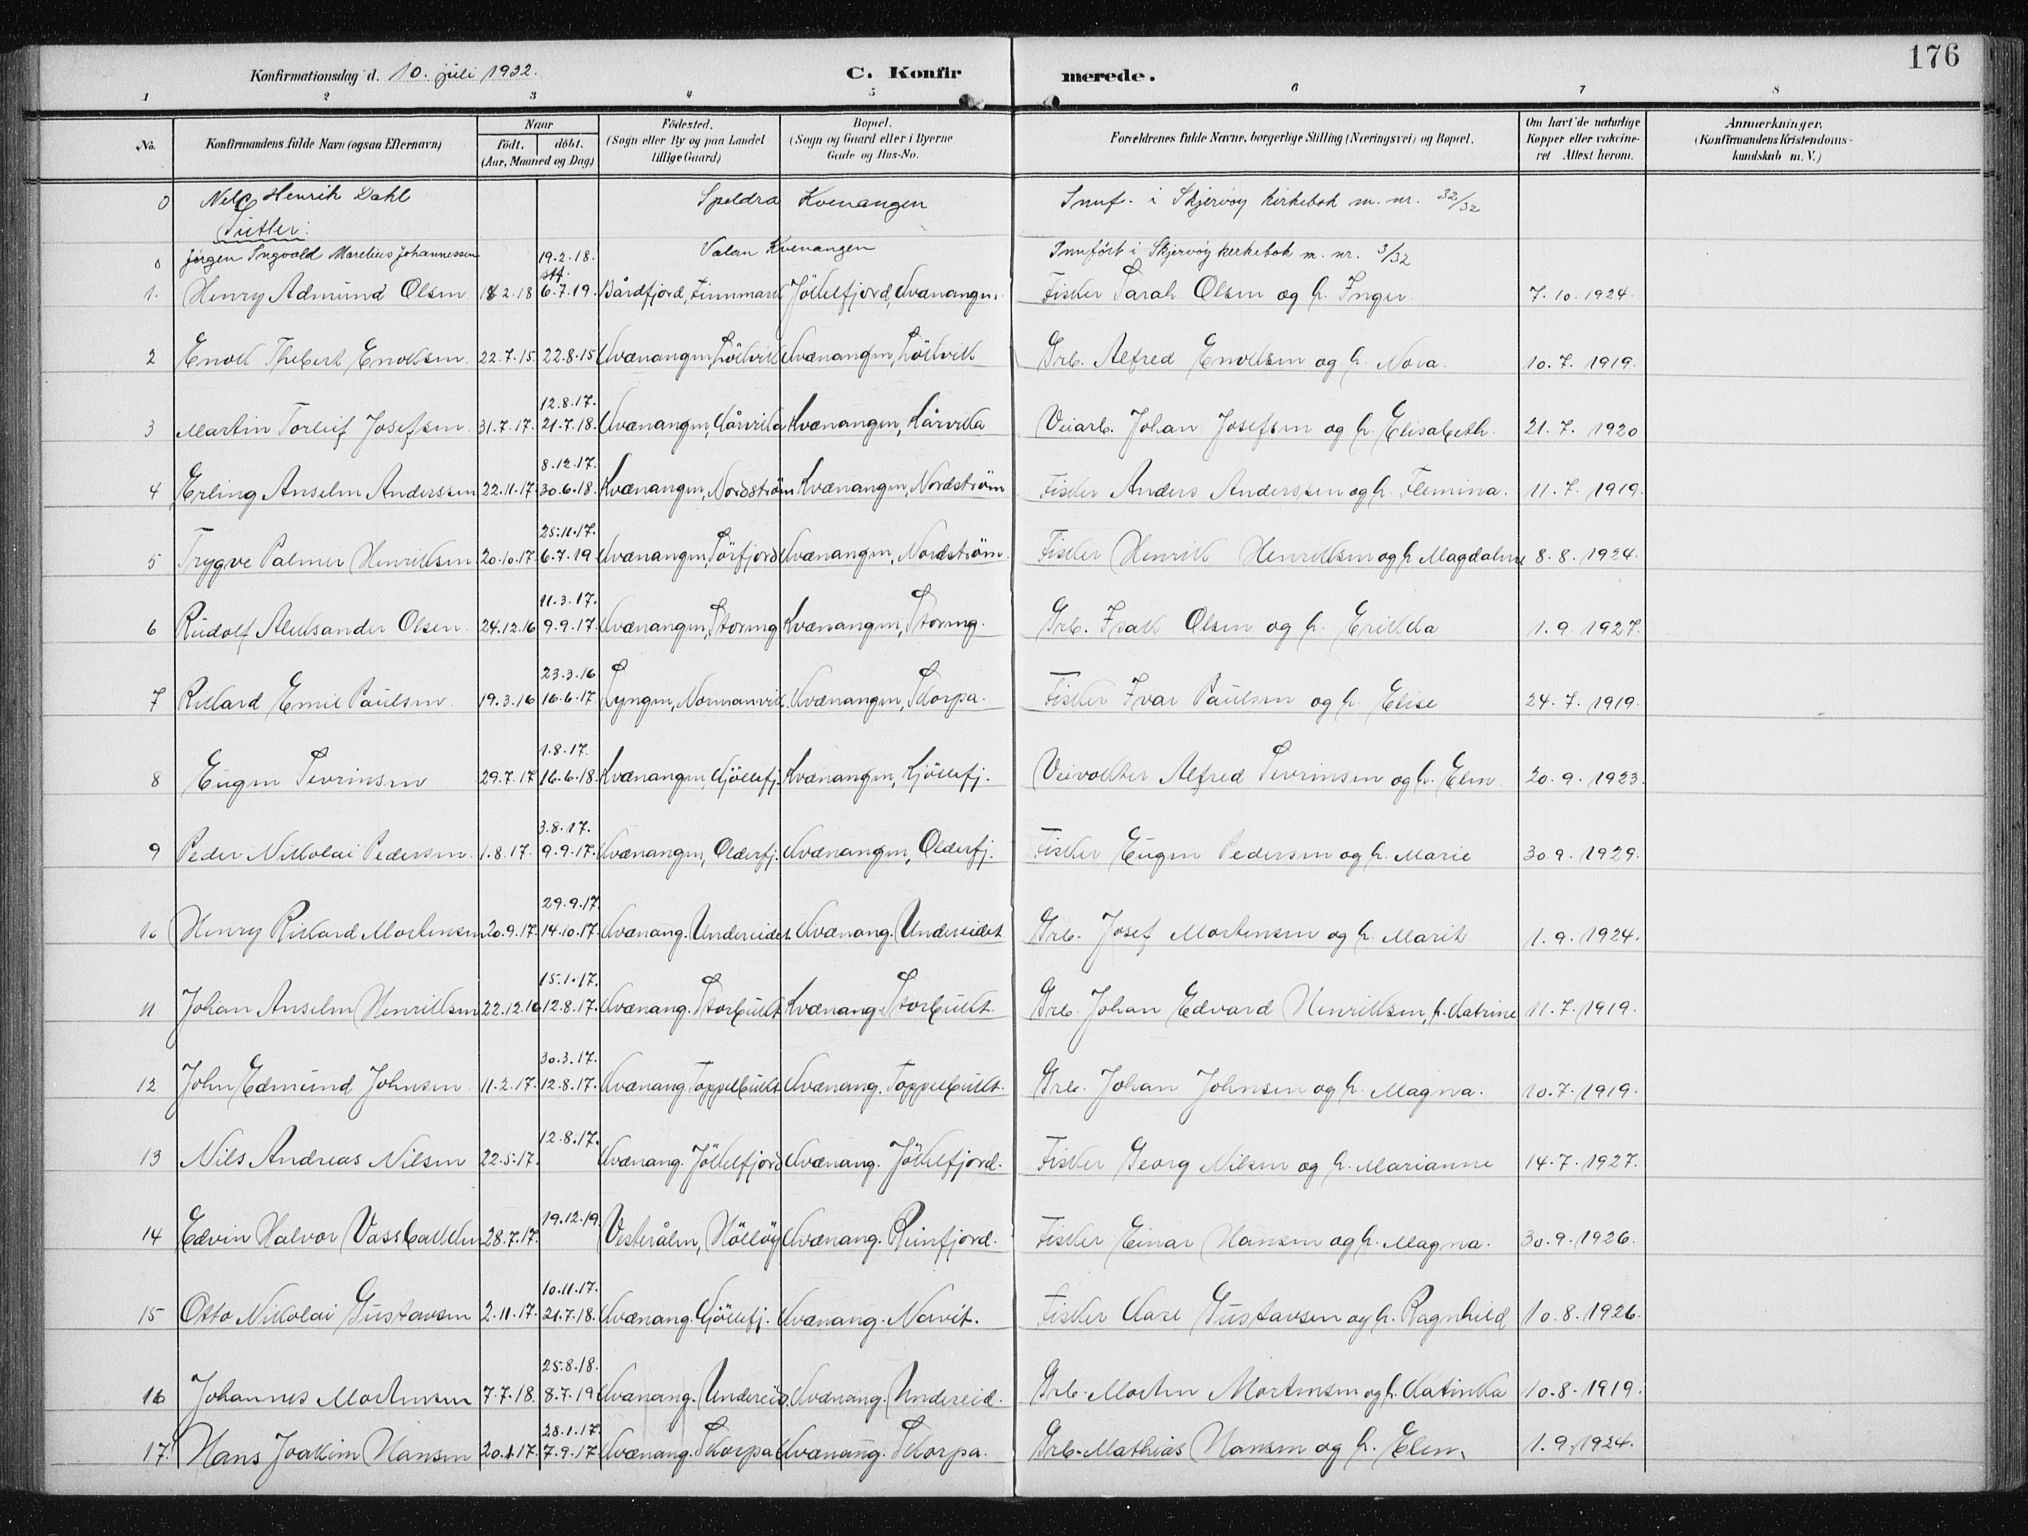 176
Konfirmationsdag d. 10. juli 1932. C. Konfir merede.
1 2 3 4 5 6 7 8
No. Konfirmandens fulde Navn (ogsaa Efternavn) Naar født. døbt. (Aar, Maaned og Dag) Fødested. (Sogn eller By og paa Landet tillige Gaard) Bopæl. (Sogn og Gaard eller i Byerne Gade og Hus-No. Forældrenes fulde Navne, borgerlige Stilling (Næringsvei) og Bopæl. Om havt de naturlige Kopper eller vaccineret Attest herom. Anmærkninger. (Konfirmandens Kristendomskundskab m. V.)
0 Nels Henrik Dahl Spildra Kvenangen Innf. i Skjervøy kirkebok m. nr. 32/32
Gutter:
0 Jørgen Ingvald Marelius Johannessen 19.2.18. Valan Kvenangen Innført i Skjervøy kirkebok m. nr. 3/32
stf.
1. Henry Admund Olsen 18.2.18 6.7.19. Bårdfjord, Finnmark Jökelfjord, Kvænangen. Fisker Sarah Olsen og h. Inger. 7.10.1924.
2 Enok Thibert Enoksen. 22.7.15. 22.8.15 Kvænangen, Sökvik Kvænangen, Sökvik Grb. Alfred Enoksen og h. Nora. 10.7.1919.
12.8.17.
3 Martin Torleif Josefsen. 31.7.17. 21.7.18. Kvænangen, Kårvika Kvænangen, Kårvika Veiarb. Johan Josefsen og h. Elisabeth. 21.7.1920
8.12.17.
4 Erling Anselm Anderssen 22.11.17. 30.6.18. Kvænangen, Nordström Kvænangen, Nordström Fisker Anders Anderssen og h. Flemina. 11.7.1919.
25.11.17.
5 Trygve Palmer Henriksen 20.10.17. 6.7.19 Kvænangen, Sörfjord Kvænangen, Nordström. Fisker Henrik Henriksen og h. Magdalene 8.8.1924.
11.3.17.
6 Rudolf Aleksander Olsen. 24.12.16 9.9.17. Kvænangen, Storeng Kvænangen, Storeng. Grb. Isak Olsen og h. Erikka 1.9.1927.
23.3.16
7 Rikard Emil Paulsen. 19.3.16 16.6.17. Lyngen, Normanvik. Kvænangen, Skorpa. Fisker Ivar Paulsen og h. Elise 24.7.1919.
1.8.17.
8 Eugen Sevrinsen 29.7.17. 16.6.18. Kvænangen, Kjöllefj. Kvænangen, Kjöllefj. Veivokter Alfred Sevrinsen og h. Elen. 20.9.1923.
3.8.17.
9 Peder Nikolai Pedersen. 1.8.17. 9.9.17. Kvænangen, Olderfj. Kvænangen, Olderfj. Fisker Eugen Pedersen og h. Marie 30.9.1929.
29.9.17.
10 Henry Rikard Mortensen 20.9.17. 14.10.17 Kvænang. Undereidet. Kvænang. Undereidet. Grb. Josef Mortensen og h. Marit 1.9.1924.
15.1.17.
11 Johan Anselm Henriksen 22.12.16 12.8.17. Kvænang. Storbukt Kvænang. Storbukt. Grb. Johan Edvard Henriksen, h. Katrine 11.7.1919.
30.3.17.
12 John Edmund Johnsen. 11.2.17. 12.8.17. Kvænang. Toppelbukt Kvænang. Toppelbukt. Grb. Johan Johnsen og h. Magna. 10.7.1919.
12.8.17.
13 Nils Andreas Nilsen 22.5.17. Kvænang. Jökelfjord Kvænang. Jökelfjord. Fisker Georg Nilsen og h. Marianne 14.7.1927.
19.12.19.
14 Edvin Halvor Vassbakken 28.7.17. Vesterålen, Hölløy Kvænang. Reinfjord. Fisker Einar Hansen og h. Magna. 30.9.1926.
10.11.17.
15 Otto Nikolai Gustavsen 2.11.17. 21.7.18. Kvænang. Kjöllefj. Kvænang. Navit. Fisker Kare Gustavsen og h. Ragnhild 10.8.1926.
25.8.18.
16 Johannes Mortensen 7.7.18. 8.7.19 Kvænang. Undereid. Kvænang. Undereid. Grb. Morten Mortensen og h. Katinka 10.8.1919.
28.1.17.
17. Hans Joakim Hansen 20.1.17. 7.9.17 Kvænang. Skorpa Kvænang. Skorpa. Grb. Mathias Hansen og h. Elen. 1.9.1924.